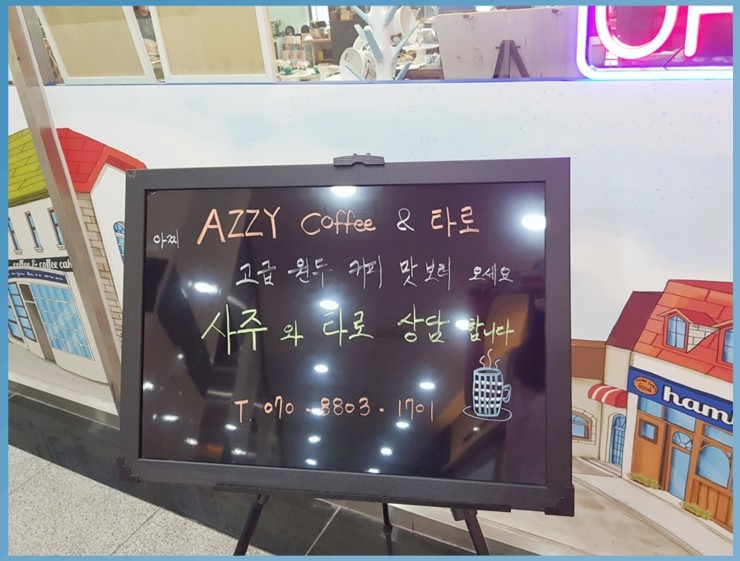 아찌 AZZY Coffee & 타로
고급 원두 커피 맛보러 오세요
사주와 타로 상담 합니다
T. 070 - 8803 - 1701
coffee & coffee cak
ham